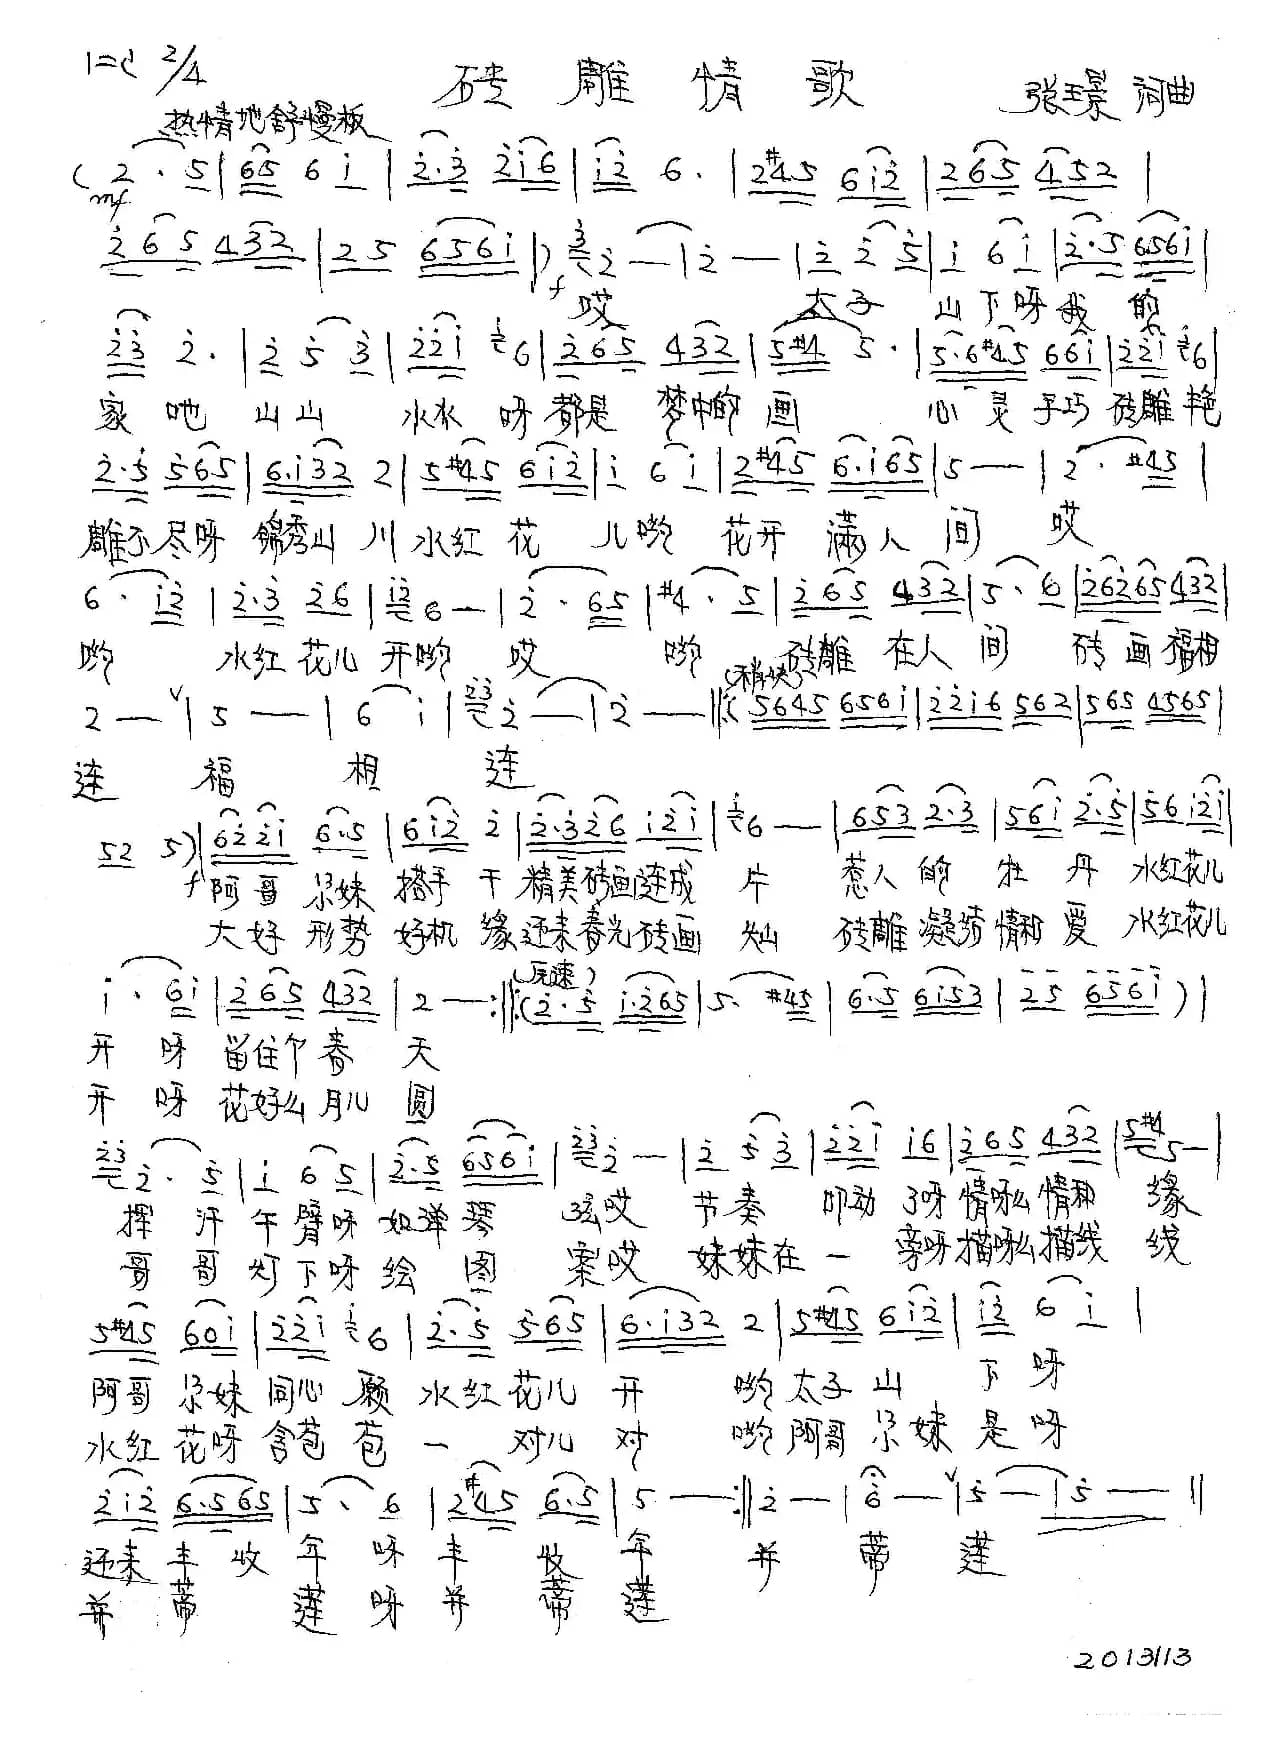 1=C 2/4
砖雕情歌
张玉景 词曲
热情地舒慢板
(2·5|65 6i|2·3 2i6|i2 6·|2#45 6i2|265 452|
mf
265 432|25 656i|)3 2—|2—|2 25|i 6i|2·5 656i|
f 哎 太子 山下呀我 的
23 2·|2 53|22i i6|265 432|5#4 5·|5·6#45 66i|22i i6|
家吔 山山 水水 呀都是 梦中的 画 心灵手巧 砖雕艳
2·5 565|6·i32 2|5#45 6i2|i 6i|2#45 6·i65|5—|2·#45|
雕不尽呀 锦秀山川 水红花 儿哟 花开满人间 哎
6·i2|2·3 26|i2 6—|2·65|#4·5|265 432|5·6|26265 432|
哟 水红花儿 开哟 哎 哟 砖雕在人间 砖画福相
(稍快)
2—|5—|6i|23 2—|2—‖:(5645 656i|22i6 562|565 4565|
连 福 相 连
52 5)|622i 6·5|6i2 2|2·326 i2i|i6—|653 2·3|56i 2·5|56 i2i|
f 阿哥尕妹 搭手干 精美砖画连成片 惹人的牡丹 水红花儿
大好形势 好机缘 还来春光砖画灿 砖雕凝结情和爱 水红花儿
(原速)
i·6i|265 432|2—:‖:(2·5 i·265|5·#45|6·5 6i53|25 656i)|
开呀 留住个春天
开呀 花好么月儿圆
23 2·5|i 65|2·5 656i|23 2—|2 53|22i i6|265 432|5#4 5—|
挥汗 午臂呀 如弹琴 弦哎 节奏 叩动了呀 情呀么情和缘
哥哥 灯下呀 绘图 案哎 妹妹在一旁呀 描呀么描线线
5#45 60i|22i i6|2·5 565|6·i32 2|5#45 6i2|i2 6i|
阿哥尕妹 同心愿 水红花儿开 哟太子山 下呀
水红花呀 含苞苞 一对儿对 哟阿哥尕妹是呀
2i2 6·565|5·6|2#45 6·5|5—:‖2—|6—|5—|5—‖
还来丰收年呀 丰收年 并蒂莲
并蒂莲呀 并蒂莲
20131113